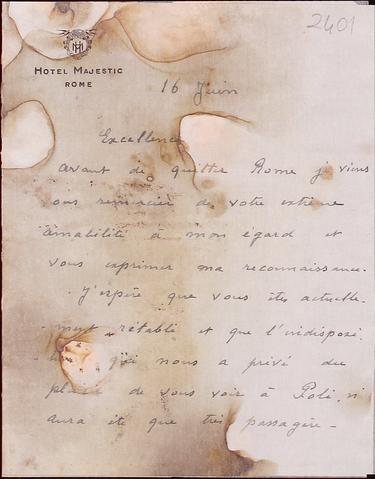 2401
HM
HOTEL MAJESTIC
ROME
16 Juin
Excellence
avant de quitter Rome je viens
ous remercier de votre extrême
amabilité à mon égard et
vous exprimer ma reconnaissance.
J'espère que vous êtes actuelle-
ment rétabli et que l'indisposi-
qui nous a privé du
plaisir de vous voir à Poli, n'
aura été que très passagère -